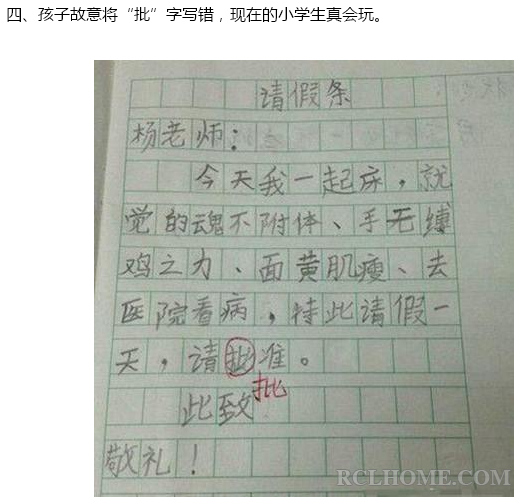 四、孩子故意将“批”字写错，现在的小学生真会玩。
请假条
杨老师：
今天我一起床，就
觉的魂不附体、手无缚
鸡之力、面黄肌瘦、去
医院看病，特此请假一
天，请准。
批
此致
敬礼！
RCLHOME.COM